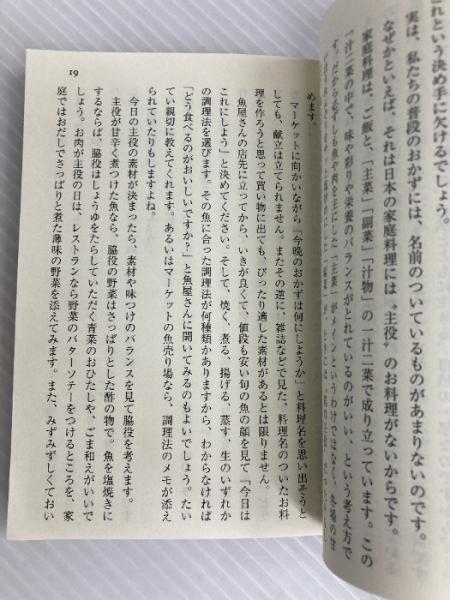 これという決め手に欠けるでしょう。
実は、私たちの普段のおかずには、名前のついているものがあまりないのです。
なぜかといえば、それは日本の家庭料理には〝主役〟のお料理がないからです。
家庭料理は、ご飯と、「主菜」「副菜」「汁物」の一汁二菜で成り立っています。この
一汁二菜の中で、味や彩りや栄養のバランスがとれているのがいい、という考え方で
めます。
マーケットに向かいながら「今晩のおかずは何にしようか」と料理名を思い出そうと
しても、献立は立てられません。またその逆に、雑誌などで見た、料理名のついたお料
理を作ろうと思って買い物に出ても、ぴったり適した素材があるとは限りません。
魚屋さんの店先に立ってから、いきが良くて、値段も安い旬の魚の顔を見て「今日は
これにしよう」と決めてください。そして、焼く、煮る、揚げる、蒸す、生のいずれか
の調理法を選びます。その魚に合った調理法が何種類かありますから、わからなければ
「どう食べるのがおいしいですか?」と魚屋さんに聞いてみるのもよいでしょう。たい
てい親切に教えてくれます。あるいはマーケットの魚売り場なら、調理法のメモが添え
られていたりもしますよね。
今日の主役の素材が決まったら、素材や味つけのバランスを見て脇役を考えます。
主役が甘辛く煮つけた魚なら、脇役の野菜はさっぱりとした酢の物で。魚を塩焼きに
するならば、脇役はしょうゆをたらしていただく青菜のおひたしや、ごま和えがいいで
しょう。お肉が主役の日は、レストランなら野菜のバターソテーをつけるところを、家
庭ではおだしでさっぱりと煮た薄味の野菜を添えてみます。また、みずみずしくておい
19